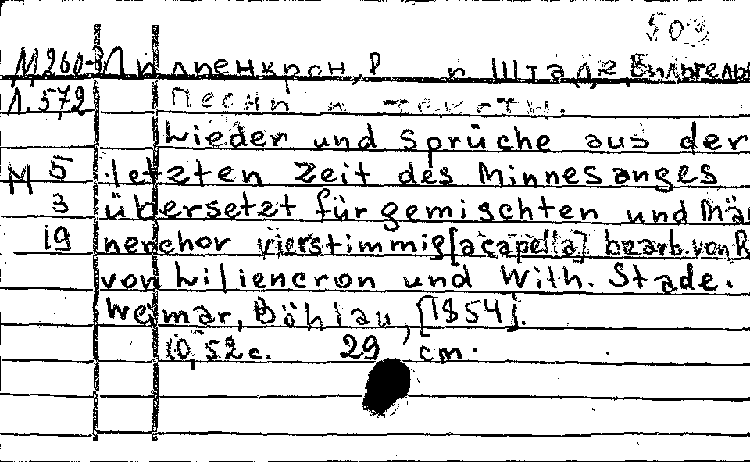 503
М260-3 Лилиенкрон, Р. и Штаде, Вильгельм
Л.572 Песни и тексты.
Lieder und Sprüche aus der
М 5 letzten Zeit des Minnesanges
3 übersetzt für gemischten und Män
19 nerchor vierstimmig [a capella] bearb. von R.
von Liliencron und With. Stade.
Weimar, Böhlau, [1854].
10, 52 с. 29 cm.